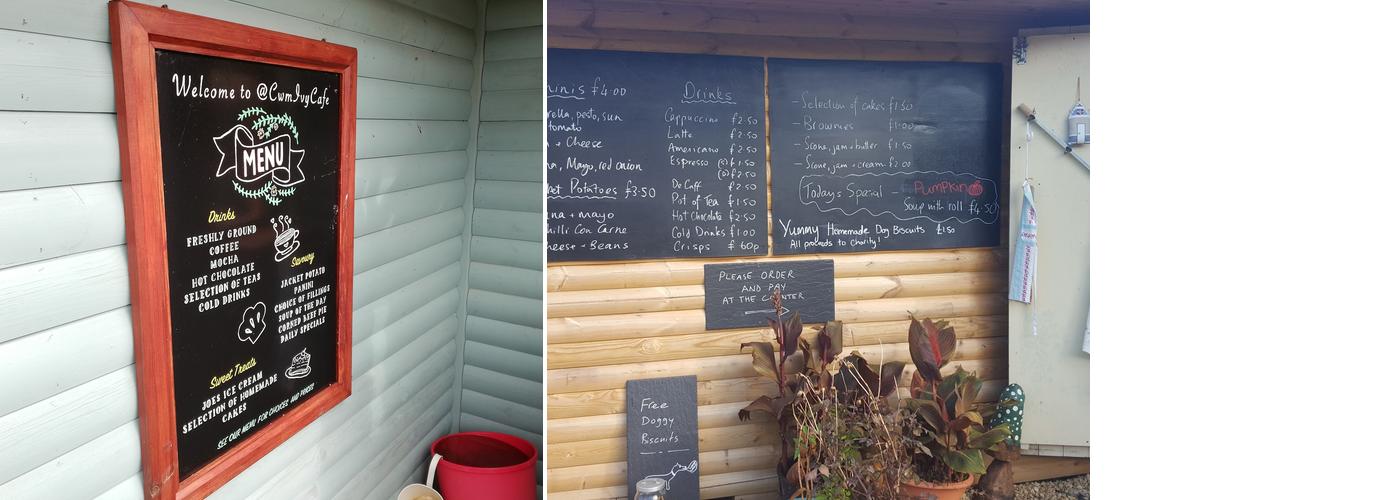 Welcome to @CwmIvyCafe
MENU
Drinks
FRESHLY GROUND
COFFEE
MOCHA
HOT CHOCOLATE
SELECTION OF TEAS
COLD DRINKS
Savoury
JACKET POTATO
PANINI
CHOICE OF FILLINGS
SOUP OF THE DAY
CORNED BEEF PIE
DAILY SPECIALS
Sweet Treats
JOES ICE CREAM
SELECTION OF HOMEMADE
CAKES
SEE OUR MENU FOR CHOICES AND PRICES!
ninis £4.00
rella, pesto, sun
tomato
+ Cheese
, Mayo, red onion
ket Potatoes £3.50
na + mayo
hilli Con Carne
heese + Beans
Drinks
Cappuccino £2.50
Latte £2.50
Americano £2.50
Espresso (s) £1.50
(D) £2.50
De Caff £2.50
Pot of Tea £1.50
Hot Chocolate £2.50
Cold Drinks £1.00
Crisps £ 60p
- Selection of cakes £1.50
- Brownies £1.00
- Scone, jam + butter £1.50
- Scone, jam + cream £2.00
Todays Special - Pumpkin
Soup with roll £4.50
Yummy Homemade Dog Biscuits £1.50
All proceeds to Charity!
PLEASE ORDER
AND PAY
AT THE COUNTER
Free
Doggy
Biscuits